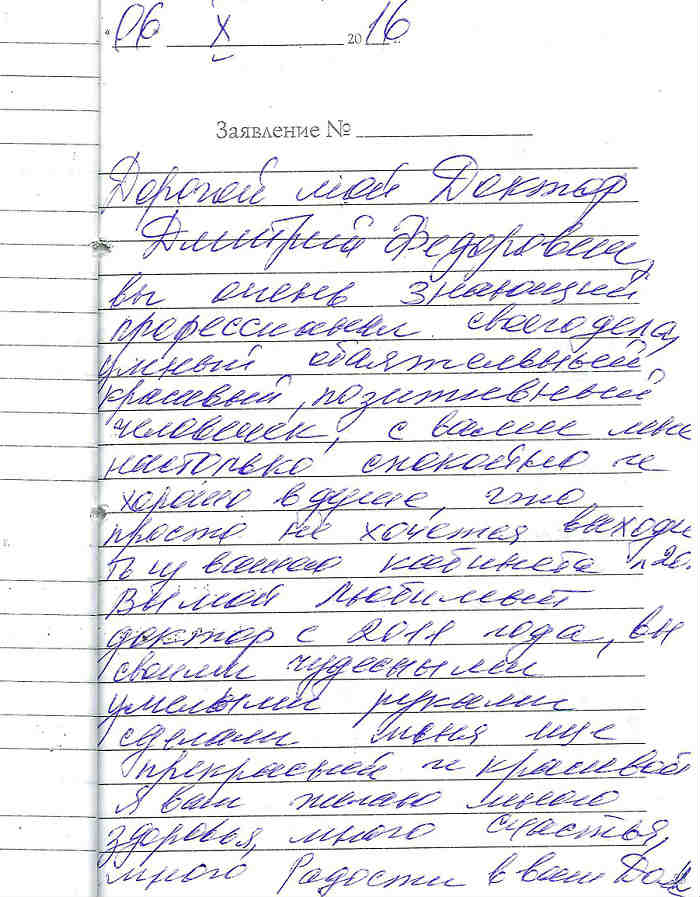 06 X 2016
Заявление №
Дорогой мой Доктор
Дмитрий Федорович,
вы очень знающий
професcионал своего дела,
умный, обаятельный,
красивый, позитивный
человечек, с вами мне
настолько спокойно и
хорошо в душе, что
просто не хочется выходи
ть из вашего кабинета
Вы мой любимый
доктор с 2011 года, вы
своими чудесными
умелыми руками
сделали меня еще
прекрасней и красивой
Я вам желаю много
здоровья, много счастья,
много Радости в ваш Дом